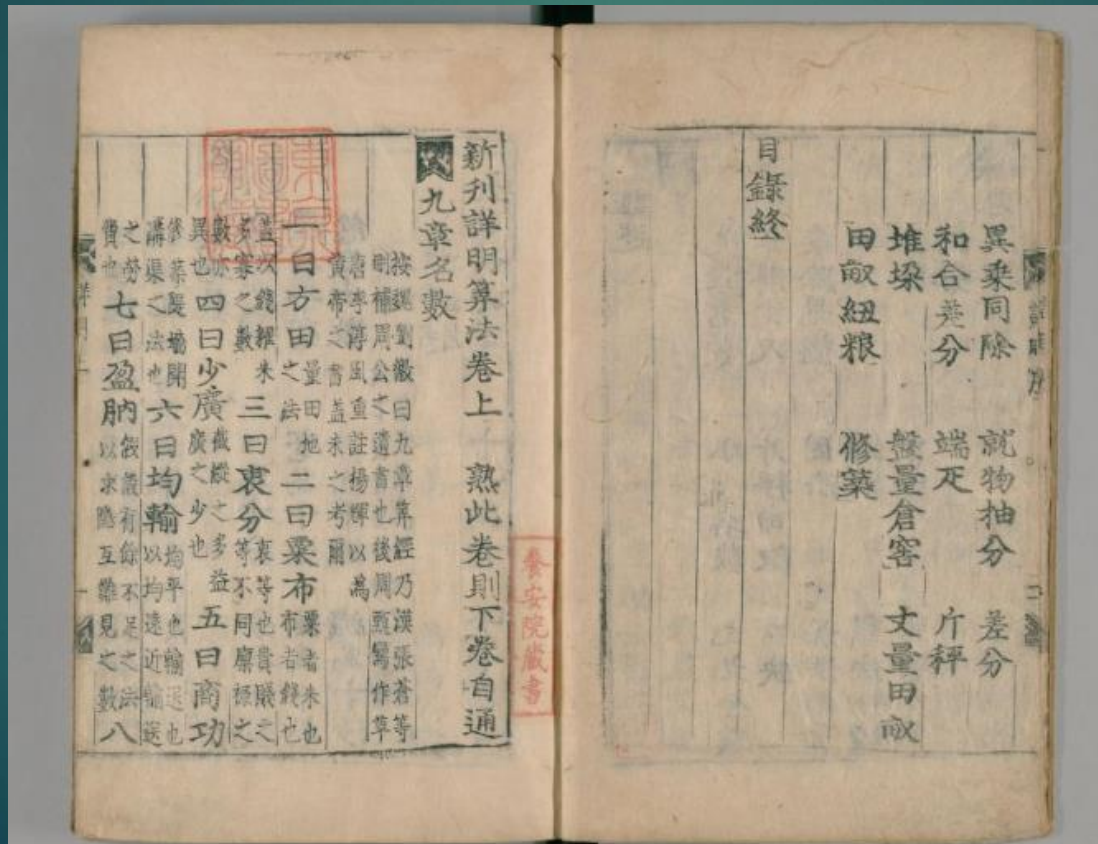 異乘同除 就物抽分 差分
和合差分 端疋 斤秤
堆垛 盤量倉窖 丈量田畝
田畝紐粮 修築
目錄終
養安院藏書
新刊詳明算法卷上 熟此卷則下卷自通
九章名數
按魏劉徽曰九章筭經乃漢張蒼等
刪補周公之遺書也後周甄鸞作草
唐李淳風重註楊輝以為
黃帝之書蓋未之考爾
一曰方田量田地之法二曰粟布粟者米也布者錢也
蓋以錢糴米多寡之數三曰衰分衰等也貴賤之等不同廪祿之
數亦異也四曰少廣截縱之多益廣之少也五曰商功
修築開濬渠之法也六曰均輸均平也輸送也以均遠近輸送
之勞費也七曰盈朒有餘不足之法以求隱互雜見之數八
詳明上 一